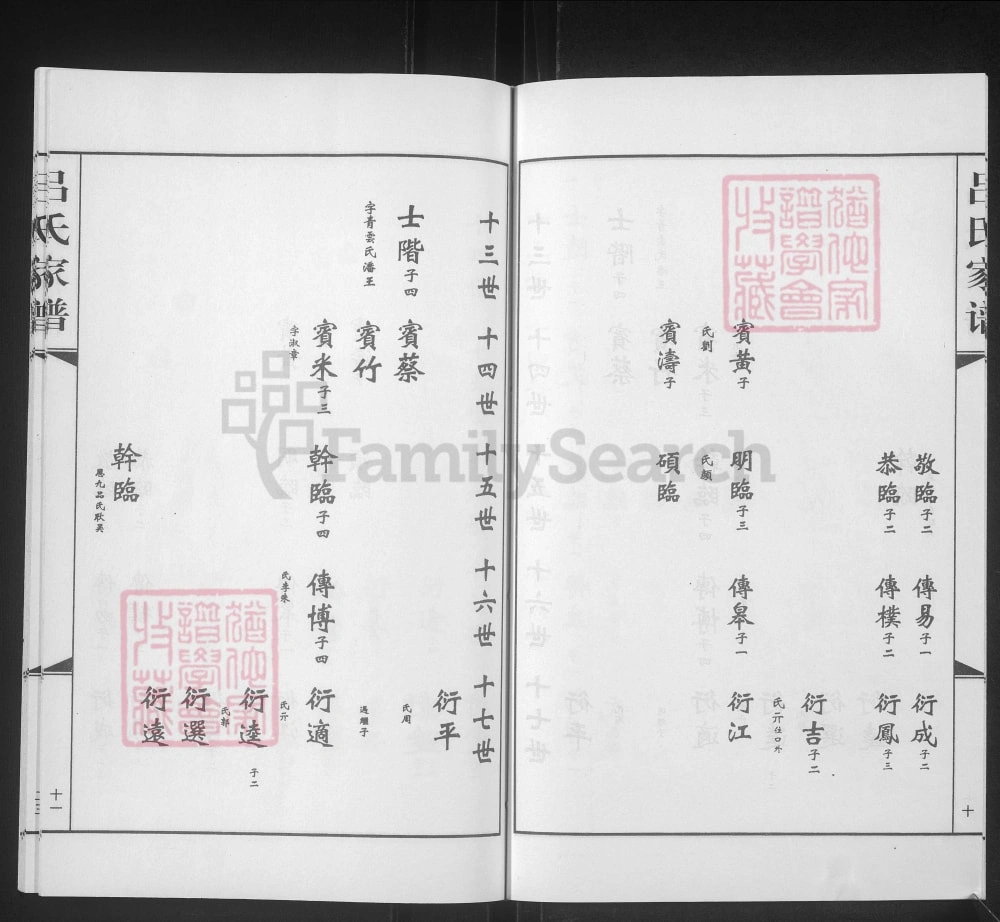 呂氏家譜
敬臨子二
傳易子一
衍成子二
恭臨子二
傳樸子二
衍鳳子三
衍吉子二
氏亓住口外
賓黃子
明臨子三
傳皋子一
衍江
氏劉
氏顏
賓濤子
碩臨
十
十三世
十四世
十五世
十六世
十七世
衍平
士階子四
賓蔡
氏周
字青雲氏潘王
賓竹
過繼子
賓米子三
幹臨子四
傳博子四
衍適
字淑章
氏李朱
氏亓
衍逵
子二
氏郭
衍選
衍遠
幹臨
呂氏家譜
十一
FamilySearch